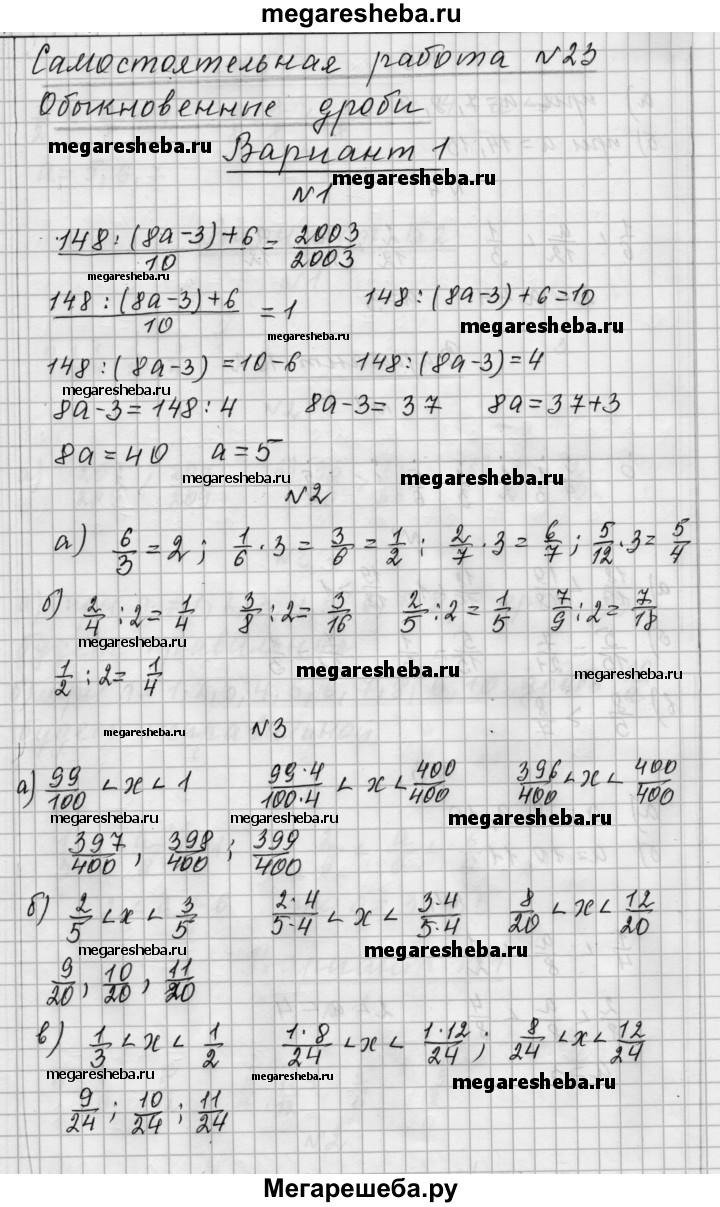 megaresheba.ru
Самостоятельная работа №23
Обыкновенные дроби
megaresheba.ru
Вариант 1
megaresheba.ru
№1
(148 : (8a-3)+6)/10 = 2003/2003
megaresheba.ru
(148 : (8a-3)+6)/10 = 1 148 : (8a-3)+6=10
megaresheba.ru megaresheba.ru
148 : (8a-3) = 10-6 148 : (8a-3) = 4
megaresheba.ru
8a-3 = 148 : 4 8a-3 = 37 8a = 37+3
8a = 40 a = 5
megaresheba.ru megaresheba.ru
№2
а) 6/3 = 2; 1/6 · 3 = 3/6 = 1/2; 2/7 · 3 = 6/7; 5/12 · 3 = 5/4
б) 2/4 : 2 = 1/4 3/8 : 2 = 3/16 2/5 : 2 = 1/5 7/9 : 2 = 7/18
1/2 : 2 = 1/4
megaresheba.ru megaresheba.ru
megaresheba.ru
megaresheba.ru №3
а) 99/100 < x < 1 (99·4)/(100·4) < x < 400/400 396/400 < x < 400/400
megaresheba.ru megaresheba.ru megaresheba.ru
397/400, 398/400; 399/400
б) 2/5 < x < 3/5 (2·4)/(5·4) < x < (3·4)/(5·4) 8/20 < x < 12/20
megaresheba.ru megaresheba.ru
9/20, 10/20, 11/20
в) 1/3 < x < 1/2 (1·8)/24 < x < (1·12)/24; 8/24 < x < 12/24
megaresheba.ru megaresheba.ru megaresheba.ru
9/24; 10/24; 11/24
Мегарешеба.ру